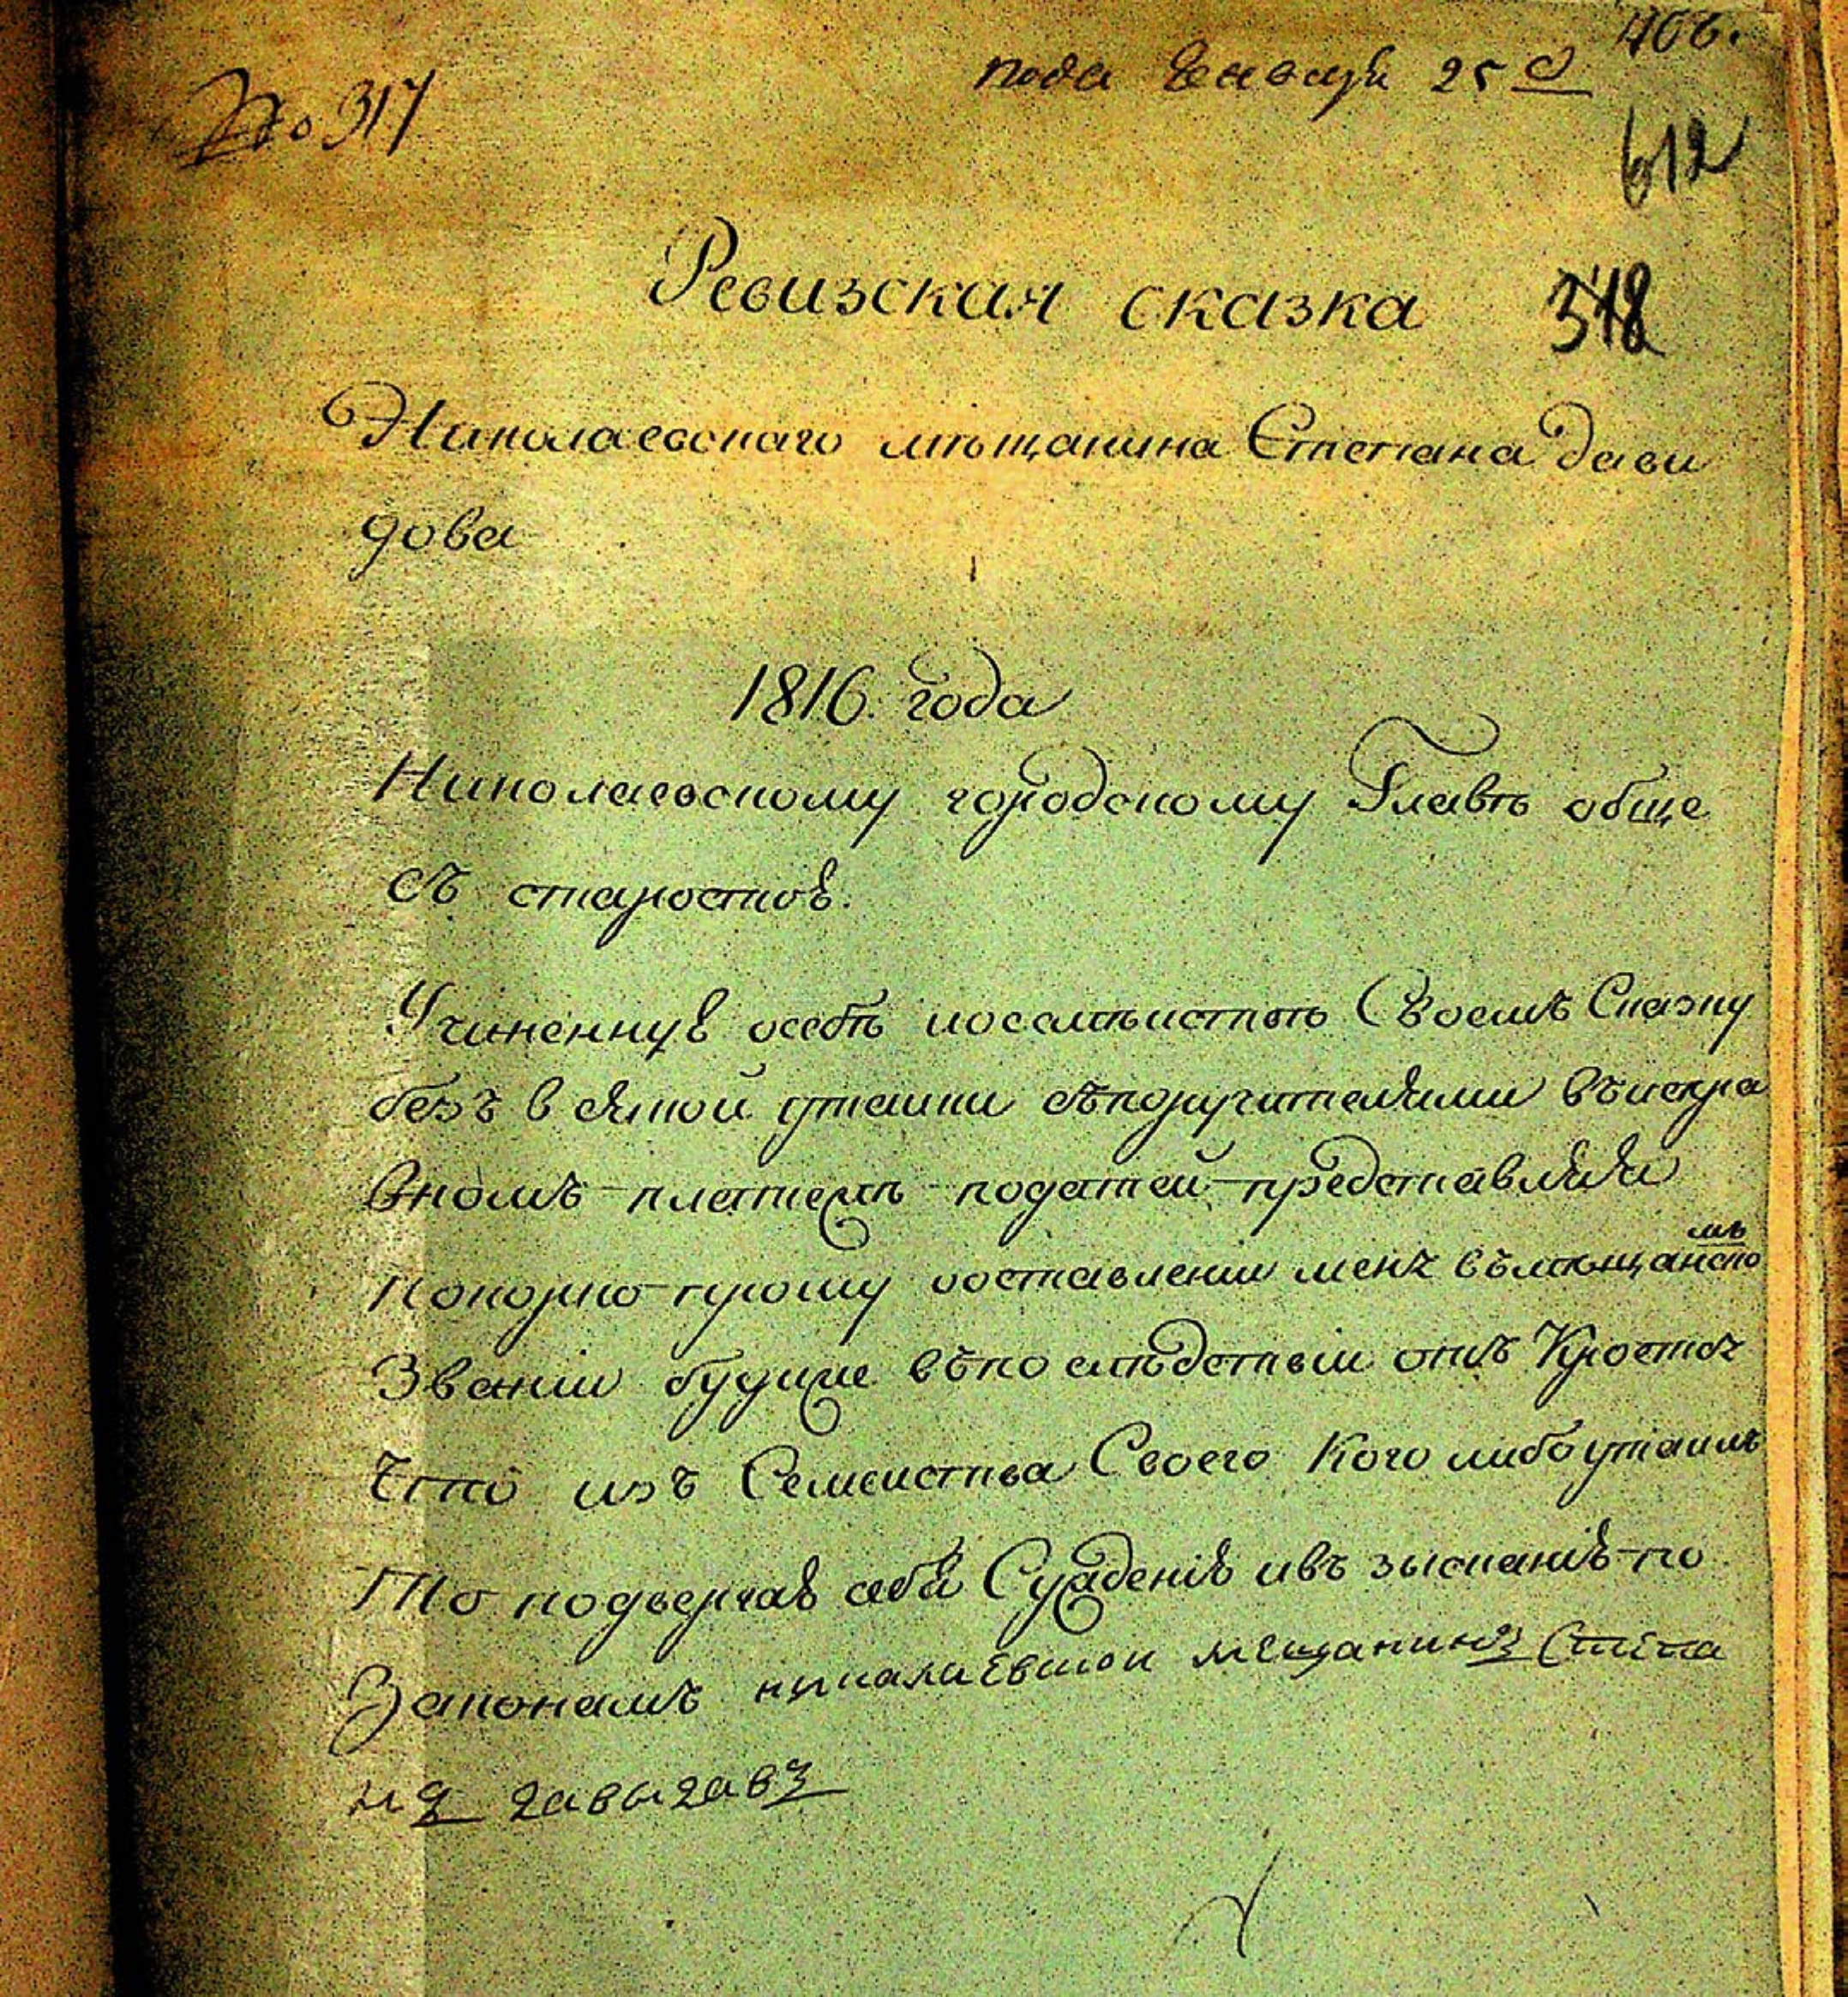 406.
№ 317
пода Генваря 25 д
612
Ревизская сказка 348
Николаевскаго мѣщанина Степана Дави
дова
1816: года
Николаевскому городскому Главѣ обще
съ старостою.
Учиненную особѣ и осемѣйствѣ Своемъ Сказку
безъ всякой утайки съпоручителями въисправ
вномъ платежѣ податей представляя
Покорно прошу ооставленіи меня въмѣщанско
мъ
Званіи будуже въпослѣдствіи откроется
Что изъ Семейства Своего Кого либо утаилъ
То подвергаю себя Сужденію ивъ зысканію по
Законамъ николаевской мещанинъ Степа
нъ давыдавъ